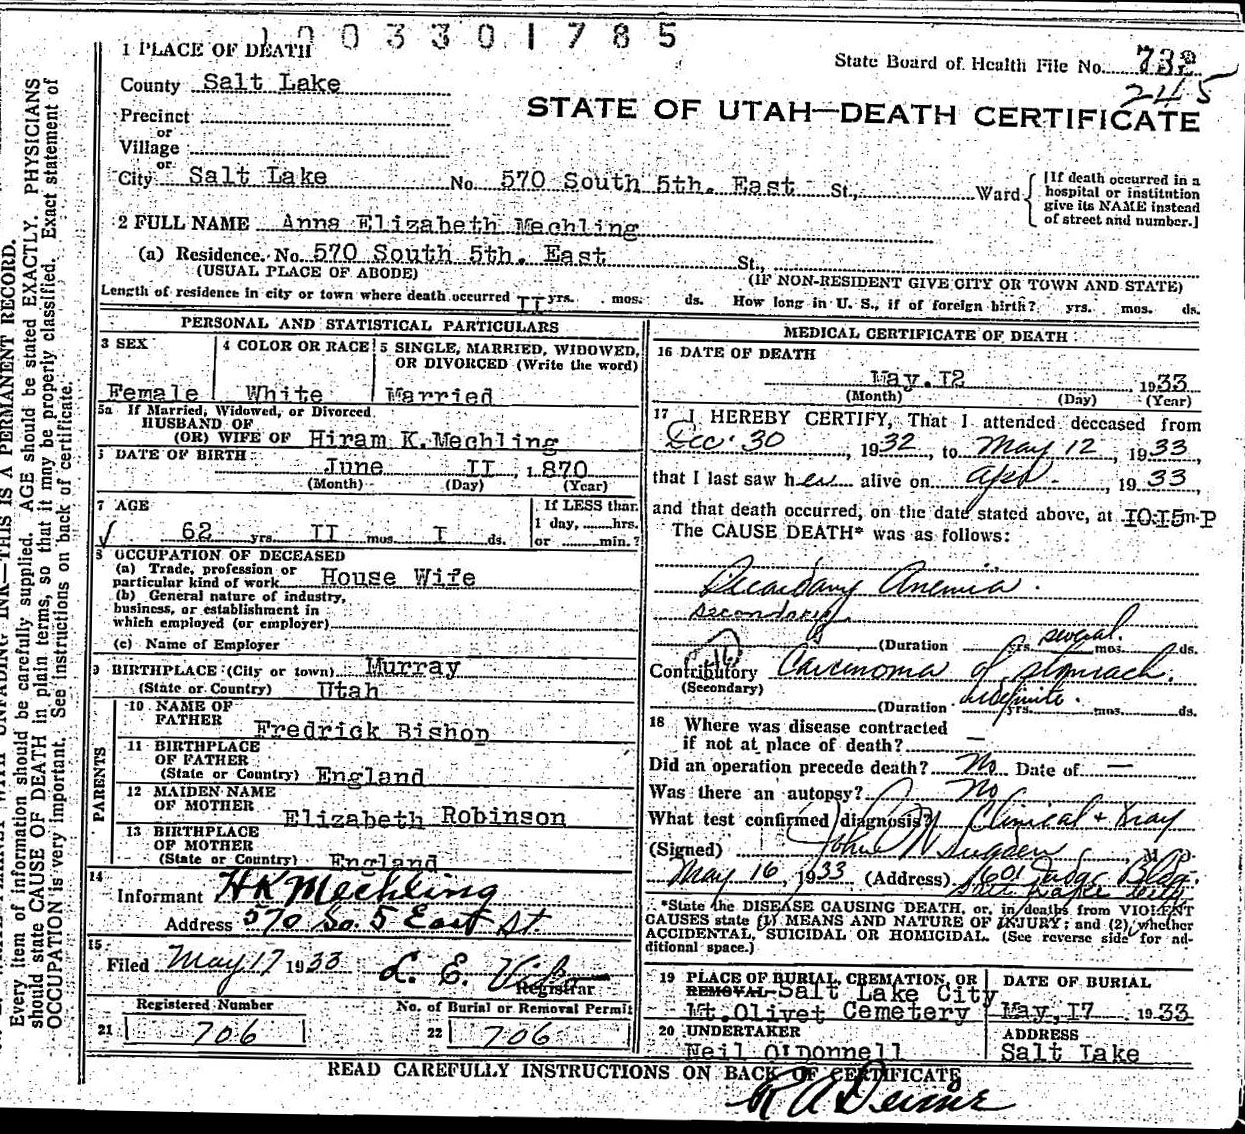 1003301785
1 PLACE OF DEATH
State Board of Health File No. 732
245
County Salt Lake
STATE OF UTAH—DEATH CERTIFICATE
Precinct
or
Village
or
City Salt Lake No. 570 South 5th. East St., Ward
[If death occurred in a hospital or institution give its NAME instead of street and number.]
2 FULL NAME Anna Elizabeth Mechling
(a) Residence. No. 570 South 5th. East St.,
(USUAL PLACE OF ABODE) (IF NON-RESIDENT GIVE CITY OR TOWN AND STATE)
Length of residence in city or town where death occurred II yrs. mos. ds. How long in U. S., if of foreign birth? yrs. mos. ds.
PERSONAL AND STATISTICAL PARTICULARS
3 SEX
Female
4 COLOR OR RACE
White
5 SINGLE, MARRIED, WIDOWED,
OR DIVORCED (Write the word)
Married
5a If Married, Widowed, or Divorced
HUSBAND OF
(OR) WIFE OF Hiram K. Mechling
DATE OF BIRTH
June II 1870
(Month) (Day) (Year)
7 AGE
62 yrs. II mos. I ds.
If LESS than
1 day, hrs.
or min.?
8 OCCUPATION OF DECEASED
(a) Trade, profession or
particular kind of work House Wife
(b) General nature of industry,
business, or establishment in
which employed (or employer)
(c) Name of Employer
9 BIRTHPLACE (City or town) Murray
(State or Country) Utah
PARENTS
10 NAME OF
FATHER Fredrick Bishop
11 BIRTHPLACE
OF FATHER
(State or Country) England
12 MAIDEN NAME
OF MOTHER Elizabeth Robinson
13 BIRTHPLACE
OF MOTHER
(State or Country) England
14
Informant H K Mechling
Address 570 So. 5 East St.
15
Filed May 17 1933 L. E.
Registrar
Registered Number
21 706
No. of Burial or Removal Permit
22 706
MEDICAL CERTIFICATE OF DEATH
16 DATE OF DEATH
May. I2 1933
(Month) (Day) (Year)
17 I HEREBY CERTIFY, That I attended deceased from
Dec. 30, 1932, to May 12, 1933,
that I last saw her alive on Apr., 1933,
and that death occurred, on the date stated above, at IO:I5m.P
The CAUSE DEATH* was as follows:
Secondary Anemia.
secondary
(Duration yrs. several mos. ds.
Contributory Carcinoma of stomach.
(Secondary)
(Duration indefinite. yrs. mos. ds.
18 Where was disease contracted
if not at place of death? —
Did an operation precede death? No Date of —
Was there an autopsy? No
What test confirmed diagnosis? Clinical + Xray
(Signed) John N Sugden, M. D.
May 16, 1933 (Address) 601 Judge Bldg.
Salt Lake City
*State the DISEASE CAUSING DEATH, or, in deaths from VIOLENT
CAUSES state (1) MEANS AND NATURE OF INJURY; and (2) whether
ACCIDENTAL, SUICIDAL OR HOMICIDAL. (See reverse side for ad-
ditional space.)
19 PLACE OF BURIAL, CREMATION, OR
REMOVAL Salt Lake City
Mt. Olivet Cemetery
DATE OF BURIAL
May, I7 1933
20 UNDERTAKER
Neil O'Donnell
ADDRESS
Salt Lake
READ CAREFULLY INSTRUCTIONS ON BACK OF CERTIFICATE
Every item of information should be carefully supplied. AGE should be stated EXACTLY. PHYSICIANS
should state CAUSE OF DEATH in plain terms, so that it may be properly classified. Exact statement of
OCCUPATION is very important. See instructions on back of certificate.